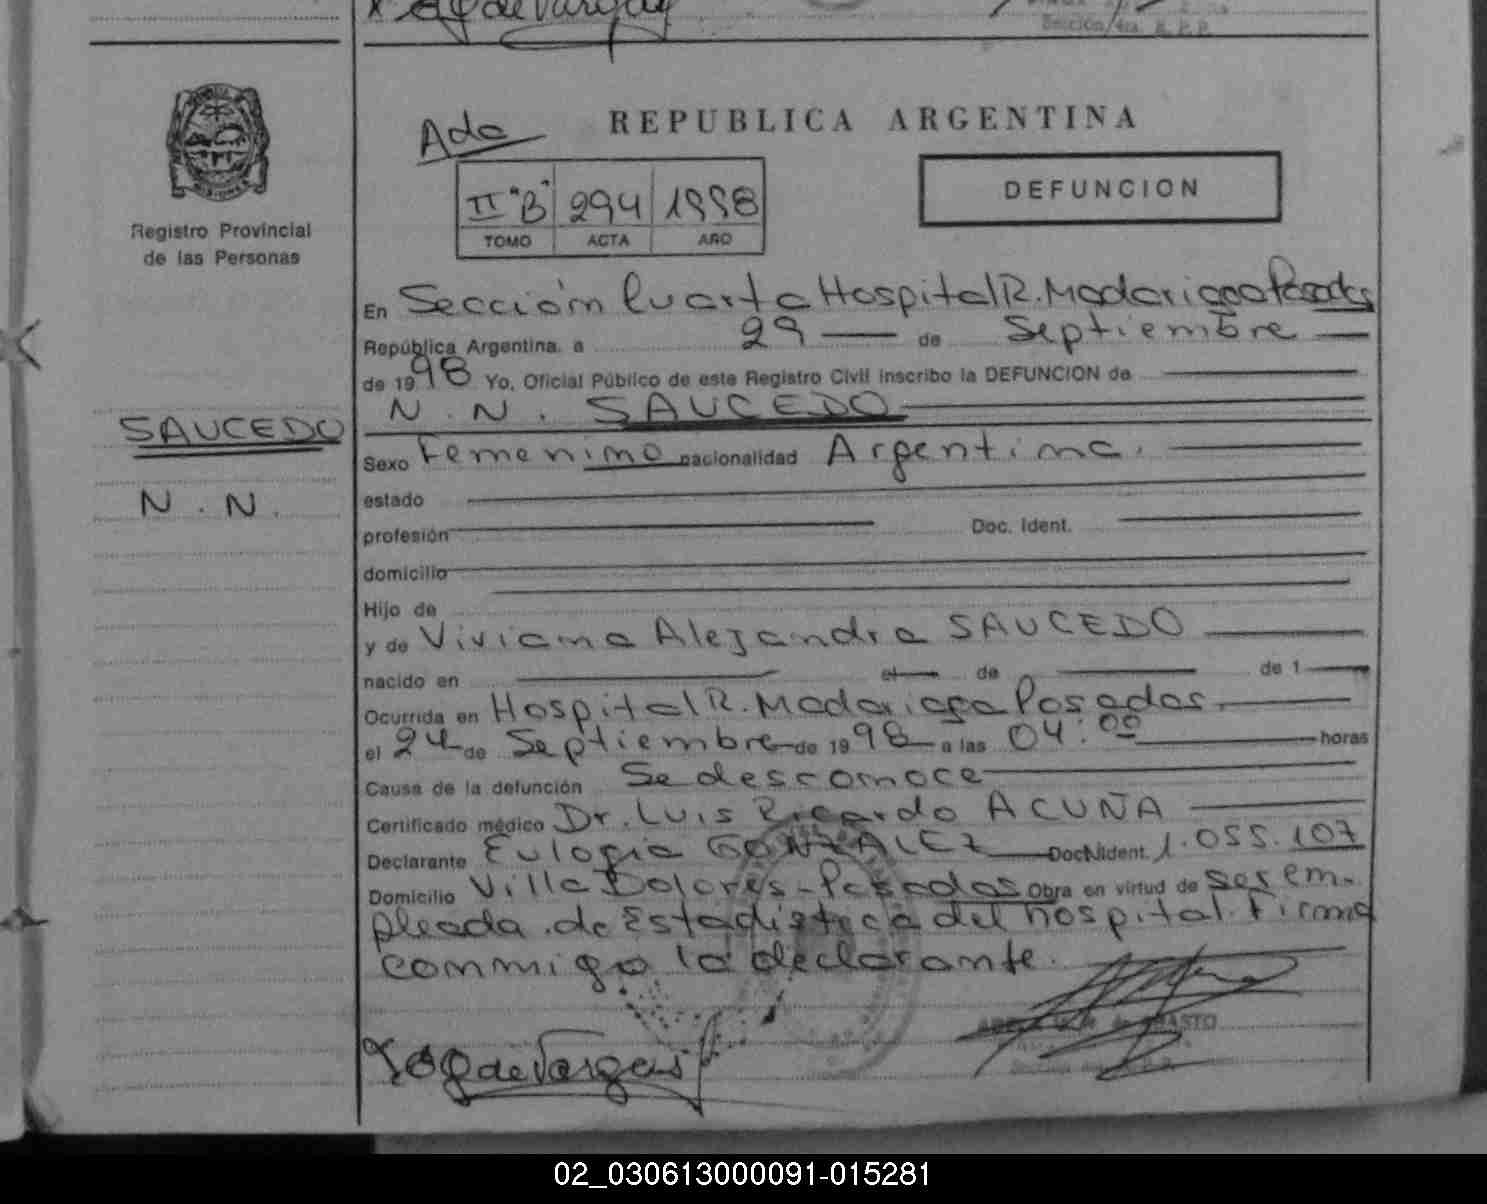 Sección 4ta. R.P.P.
REPUBLICA ARGENTINA
Ada
II "B" 294 1998
TOMO ACTA AÑO
DEFUNCION
Registro Provincial
de las Personas
SAUCEDO
N. N.
En Sección Cuarta Hospital R. Madariaga Posadas
República Argentina, a 29 de Septiembre
de 1998 Yo, Oficial Público de este Registro Civil inscribo la DEFUNCION de
N. N. SAUCEDO
Sexo Femenino nacionalidad Argentina.
estado
profesión Doc. Ident.
domicilio
Hijo de
y de Viviana Alejandra SAUCEDO
nacido en el de de 1
Ocurrida en Hospital R. Madariaga Posadas.
el 24 de Septiembre de 1998 a las 04:00 horas
Causa de la defunción Se desconoce
Certificado médico Dr. Luis Ricardo ACUÑA
Declarante Eulogia GONZALEZ Doc. Ident. 1.055.107
Domicilio Villa Dolores - Posadas Obra en virtud de ser em-
pleada de Estadística del hospital. Firma
conmigo la declarante.
de Vargas
02_030613000091-015281